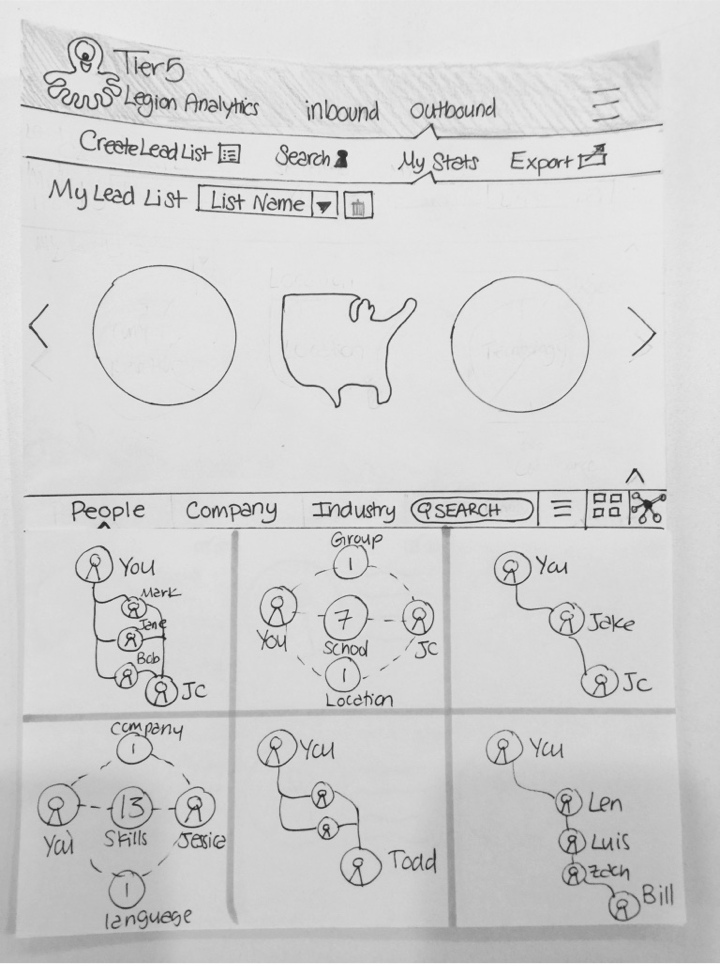 Tier5
Legion Analytics inbound outbound
Create Lead List Search My Stats Export
My Lead List List Name
People Company Industry SEARCH
You
Mark
Jane
Bob
Jc
Group
1
You 7 Jc
School
1
Location
You
Jake
Jc
Company
1
13
You Skills Jessica
1
language
You
Todd
You
Len
Luis
Zach
Bill